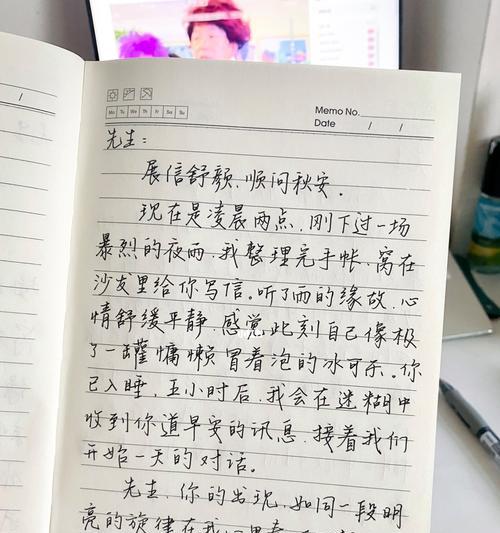 Mo Tu We Th Fr Sa Su
Memo No.
Date / /
/
先生：
展信舒颜、顺问秋安。
现在是凌晨两点，刚下过一场
暴烈的夜雨，我整理完手帐，窝在
沙发里给你写信。听了雨的缘故，心
情舒缓平静，感觉此刻自己像极
了一罐慵懒冒着泡的冰可乐。你
已入睡，五小时后，我会在迷糊中
收到你道早安的讯息，接着我们
开始一天的对话。
先生，你的出现，如同一段明
亮的旋律在我心里